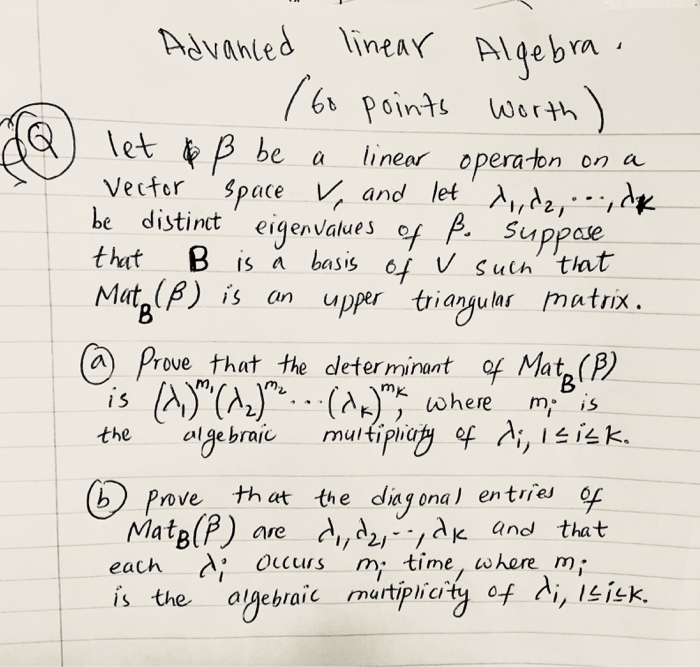 Advanced linear Algebra.
(60 points worth)
Q let β be a linear operaton on a
vector space V, and let λ₁, λ₂, ..., λk
be distinct eigenvalues of β. Suppose
that B is a basis of V such that
Mat_B(β) is an upper triangular matrix.
(a) Prove that the determinant of Mat_B(β)
is (λ₁)^m₁ (λ₂)^m₂ ... (λk)^mk, where mᵢ is
the algebraic multiplicity of λᵢ, 1≤i≤k.
(b) Prove that the diagonal entries of
Mat_B(β) are λ₁, λ₂, ..., λk and that
each λᵢ occurs mᵢ time, where mᵢ
is the algebraic multiplicity of λi, 1≤i≤k.